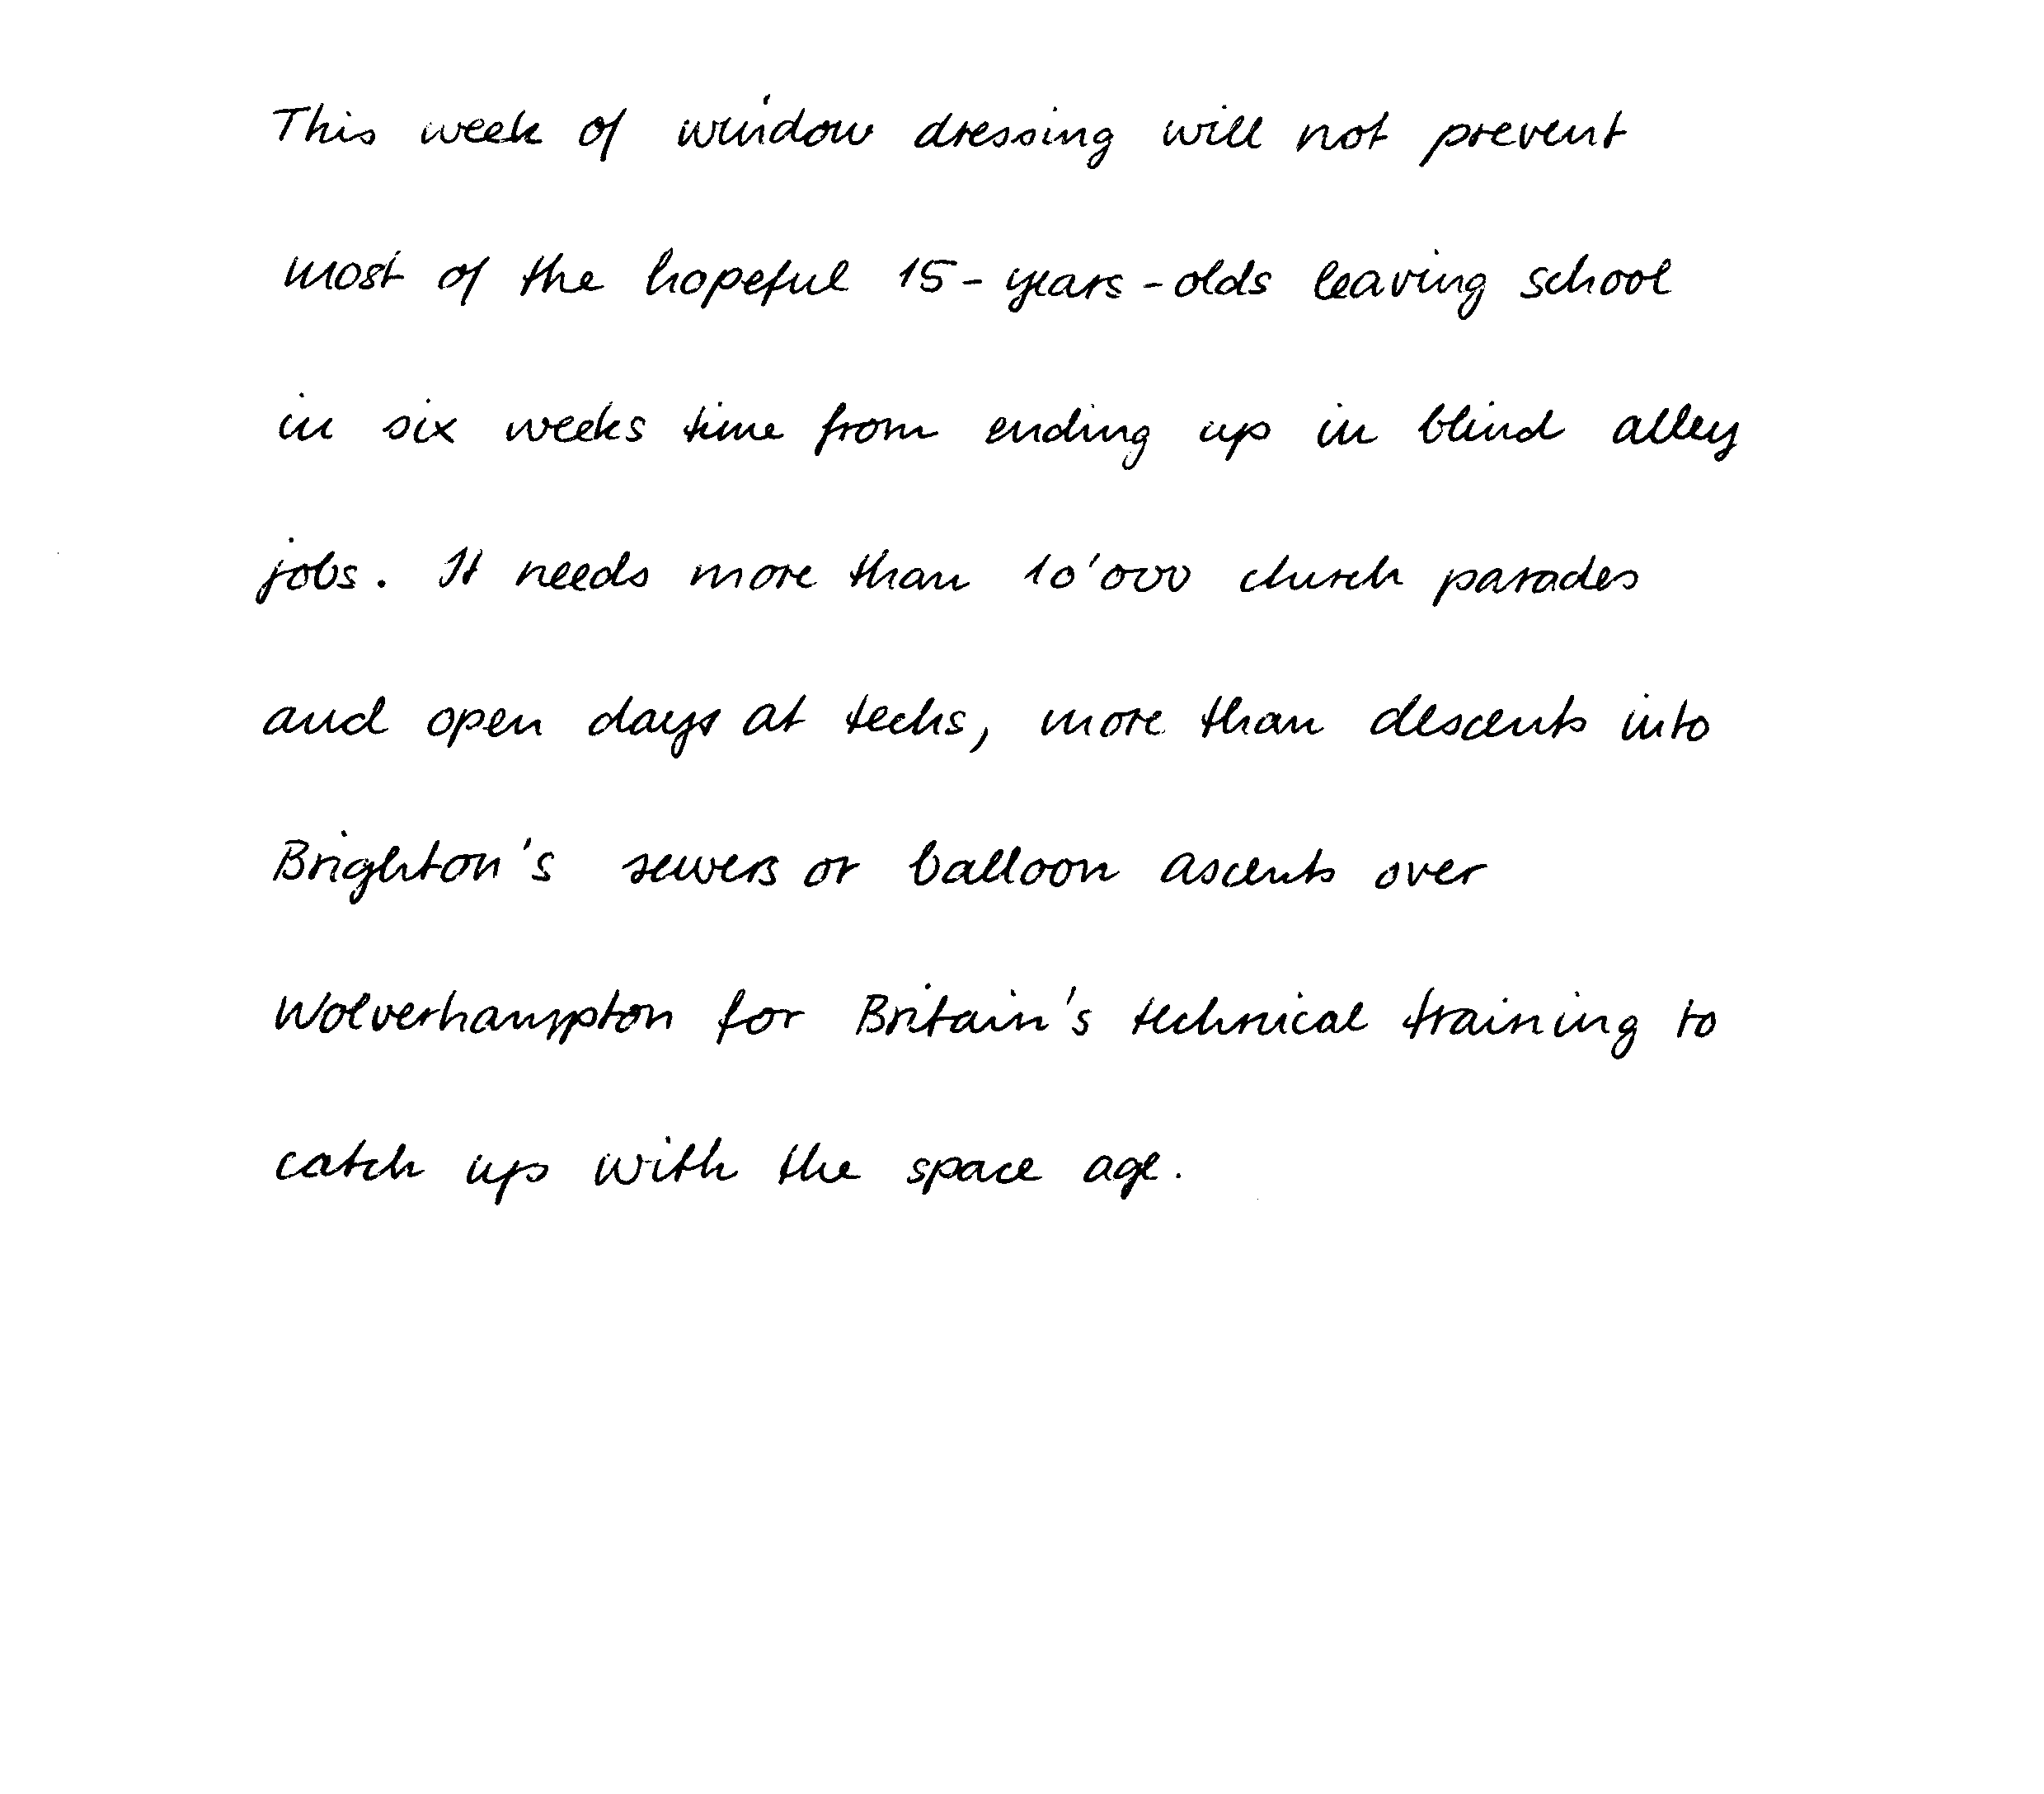 This week of window dressing will not prevent
most of the hopeful 15-years-olds leaving school
in six weeks time from ending up in blind alley
jobs. It needs more than 10'000 church parades
and open days at techs, more than descents into
Brighton's sewers or balloon ascents over
Wolverhampton for Britain's technical training to
catch up with the space age.